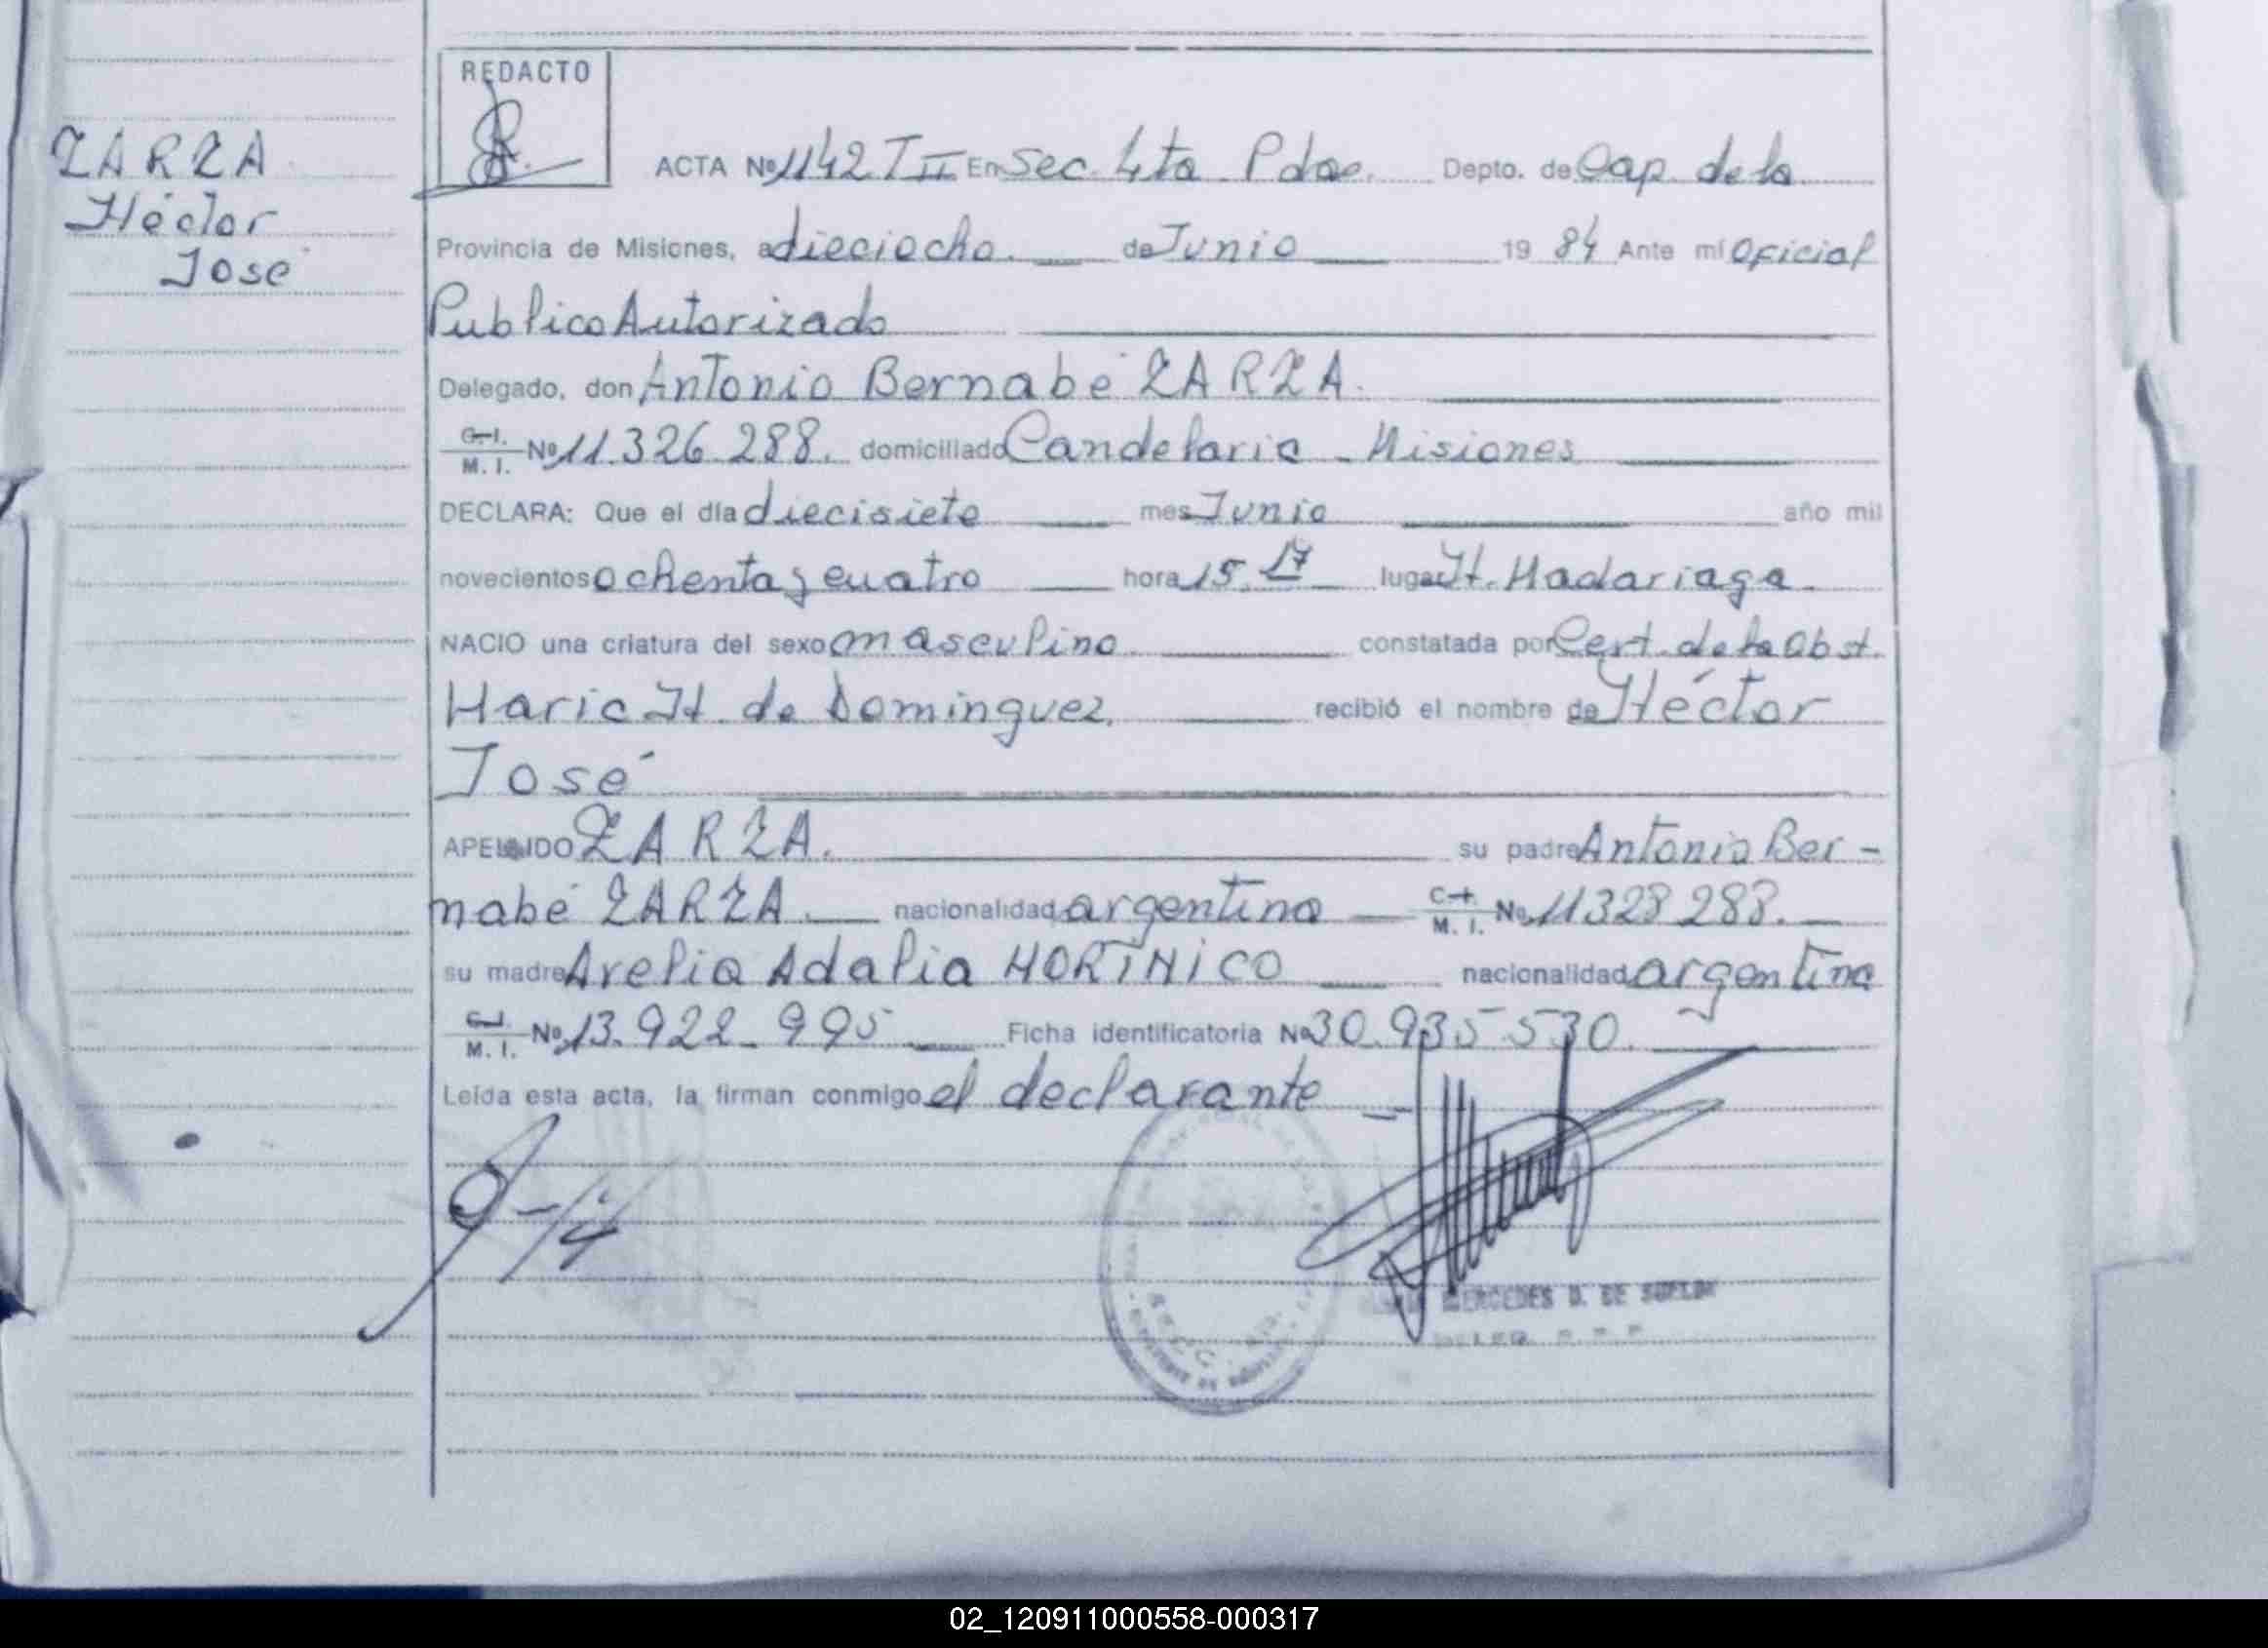 REDACTO
ZARZA
Héctor
José
ACTA Nº 1142 T II En Sec. 4ta Pdas. Depto. de Cap. de la
Provincia de Misiones, a dieciocho. de Junio 19 84 Ante mí Oficial
Publico Autorizado
Delegado, don Antonio Bernabé ZARZA.
C. I. M. I. Nº 11.326.288. domiciliado Candelaria - Misiones
DECLARA: Que el día diecisiete mes Junio año mil
novecientos ochenta y cuatro hora 15.17 lugar H. Madariaga.
NACIO una criatura del sexo masculino. constatada por Cert. de la Obst.
Maria H. de Dominguez. recibió el nombre de Héctor
José
APELLIDO ZARZA. su padre Antonio Ber-
nabé ZARZA. nacionalidad argentina C. I. M. I. No. 11328288.
su madre Avelia Adalia MORINICO nacionalidad argentina
C. I. M. I. Nº 13.922.995 Ficha identificatoria Nº 30.935530.
Leída esta acta, la firman conmigo el declarante
MERCEDES D. DE
02_120911000558-000317